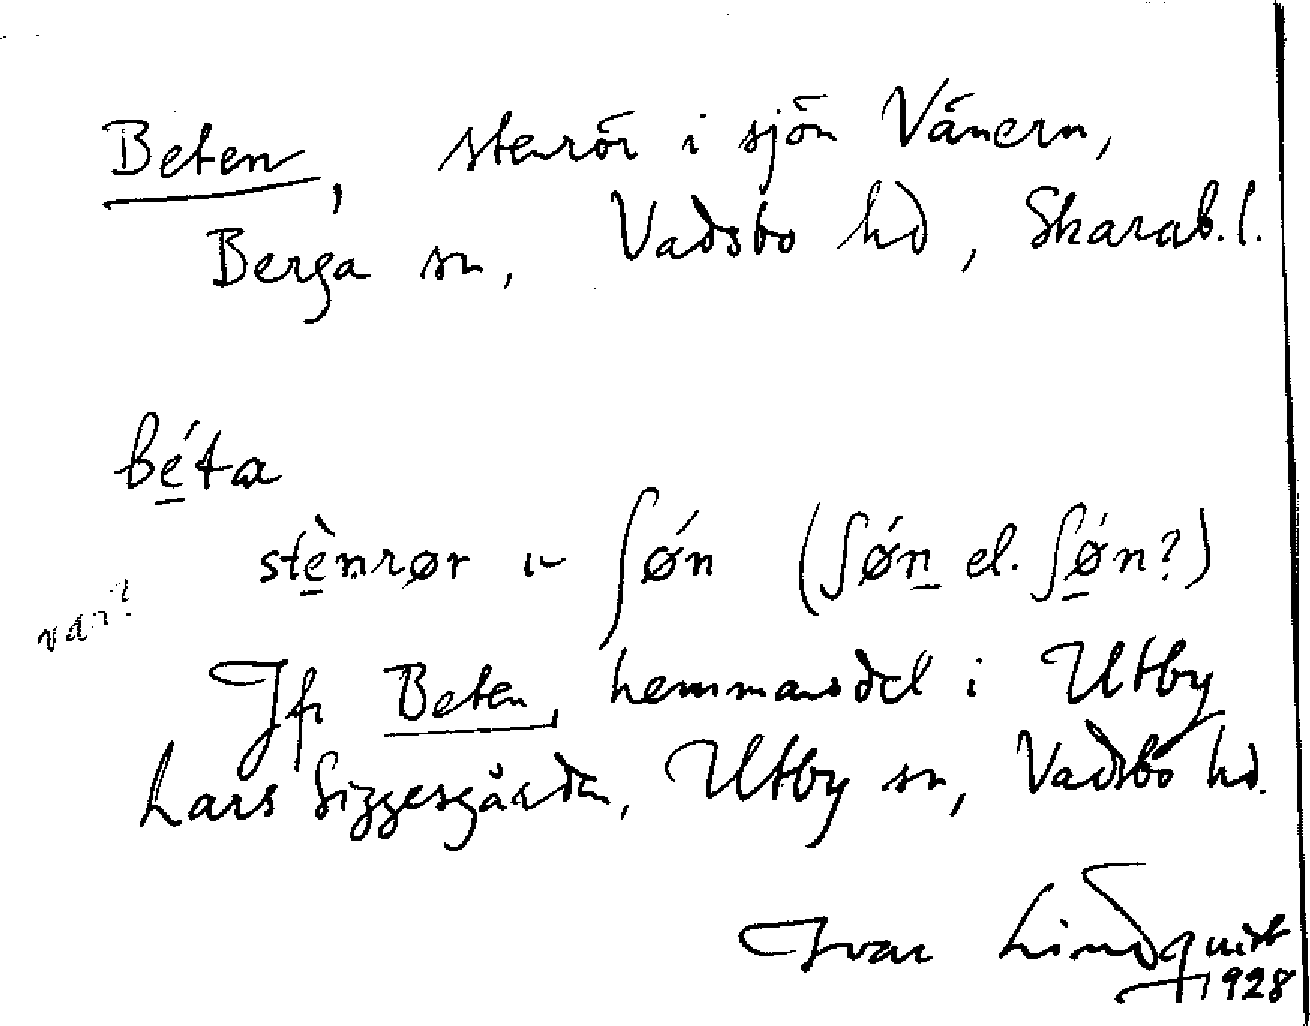 Beten, stenrör i sjön Vänern,
Berga sn, Vadsbo hd, Skarab. l.
béta
stènrør ɩ ʃǿn (ʃǿn el. ʃǿn?)
var?
Jfr Beten, hemmansdel i Utby
Lars Siggesgården, Utby sn, Vadsbo hd.
Ivar Lindquist
1928